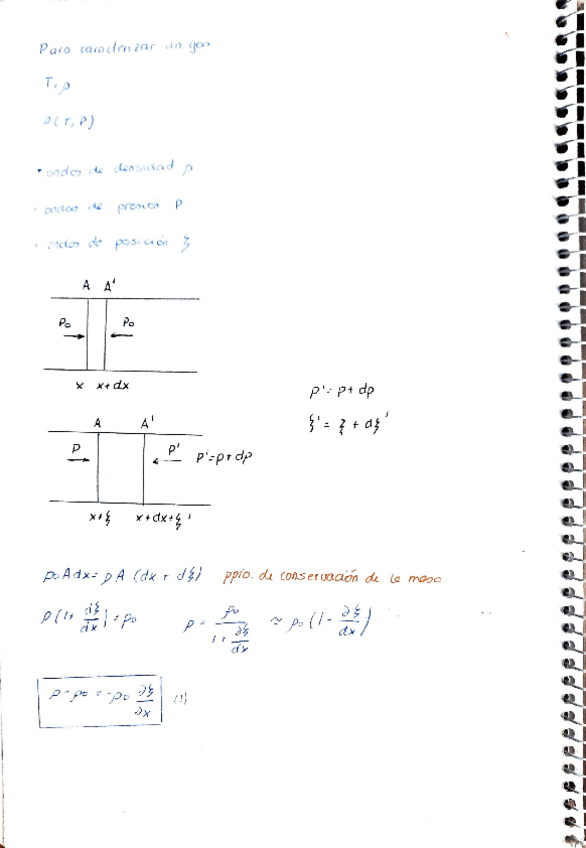 Para caracterizar un gas
T, ρ
ρ(T, P)
• ondas de densidad ρ
• ondas de presión P
• ondas de posición ξ
A A'
P₀ P₀
x x+dx
ρ' = ρ + dρ
ξ' = ξ + dξ'
A A'
P P' P' = P + dP
x+ξ x+dx+ξ'
ρ₀Adx = ρA (dx + dξ) ppio. de conservación de la masa
ρ(1 + dξ/dx) = ρ₀ ρ = ρ₀/(1 + ∂ξ/dx) ≃ ρ₀(1 - ∂ξ/dx)
ρ - ρ₀ = -ρ₀ ∂ξ/∂x (1)